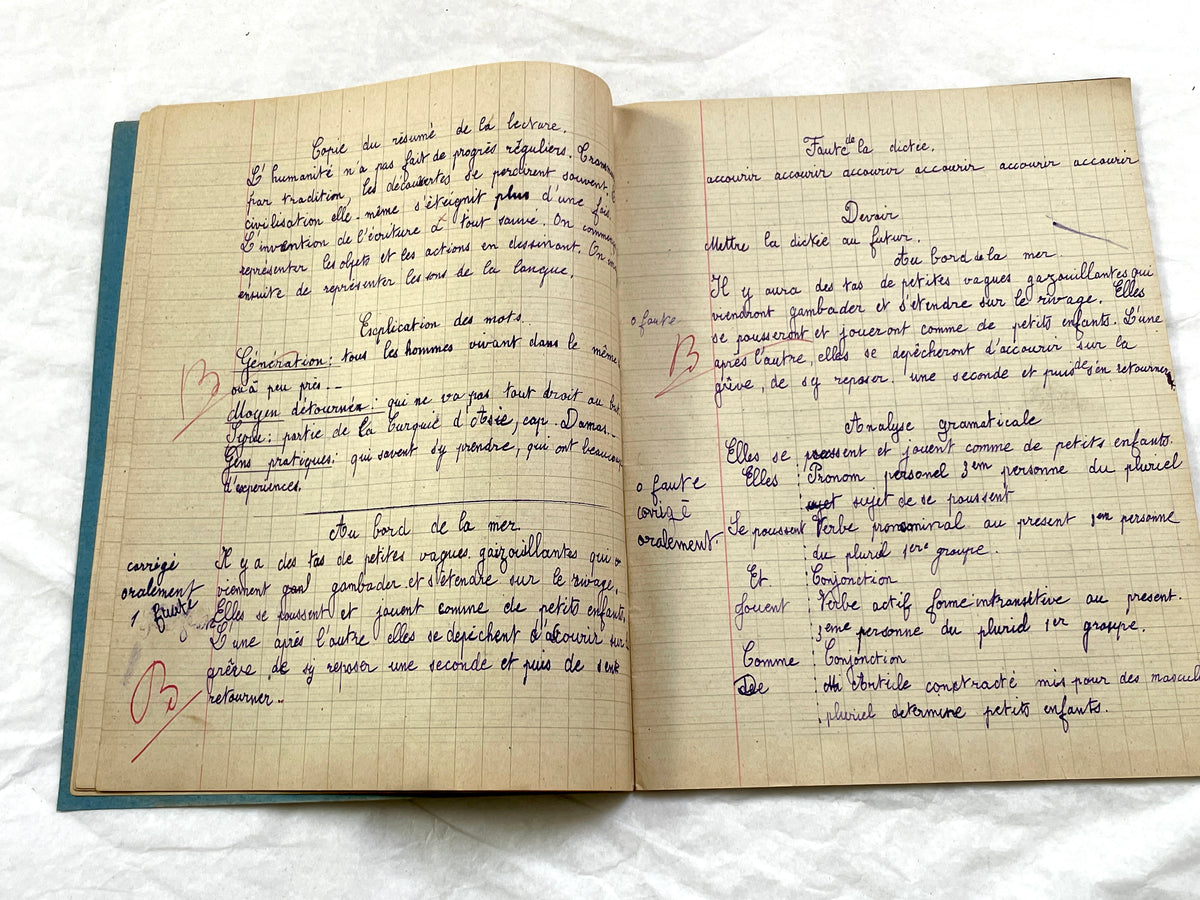 Copie du résumé de la lecture.
L'humanité n'a pas fait de progrès réguliers.
par tradition, les découvertes se perdirent souvent.
civilisation elle-même s'éteignit plus d'une fois
L'invention de l'écriture a tout sauvé. On commen
représenter les objets et les actions en dessinant. On
ensuite de représenter les sons de la langue.
Explication des mots.
Génération: tous les hommes vivant dans le même
ou à peu près.
Moyen détourné: qui ne va pas tout droit au but
partie de la Turquie d'Asie, cap. Damas.
Gens pratiques: qui savent s'y prendre, qui ont beaucoup
d'experiences.
Au bord de la mer.
Il y a des tas de petites vagues gazouillantes qui
viennent gambader et s'étendre sur le rivage.
Elles se poussent et jouent comme de petits enfants,
L'une après l'autre elles se depêchent d'accourir sur
grêve de s'y reposer une seconde et puis de s'en
retourner..
corrigé
oralement
1 faute
B
B
Faute de la dictée.
accourir accourir accourir accourir accourir accourir
Devoir
Mettre la dictée au futur.
Au bord de la mer.
Il y aura des tas de petites vagues gazouillantes qui
viendront gambader et s'étendre sur le rivage. Elles
se pousseront et joueront comme de petits enfants. L'une
après l'autre, elles se depêcheront d'accourir sur la
grêve, de s'y reposer une seconde et puis de s'en retourner.
0 faute
B
Analyse gramaticale
Elles se poussent et jouent comme de petits enfants.
Elles Pronom personel 3em personne du pluriel
sujet sujet de se poussent
Se poussent Verbe pronominal au present 3em personne
du pluriel 1ere groupe.
Et Conjonction
Jouent Verbe actif forme intransitive au present.
3eme personne du pluriel 1er groupe.
Comme Conjonction
De Article contracté mis pour des masculi
pluriel determine petits enfants.
0 faute
corrigé
oralement.